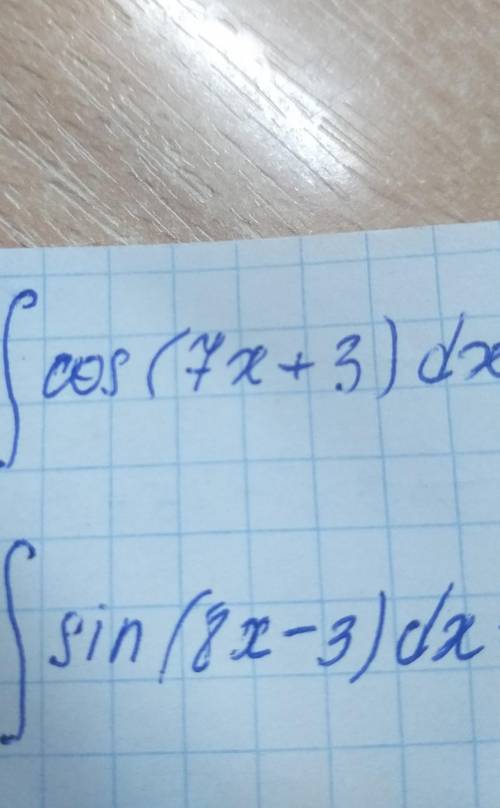 ∫ cos (7x + 3) dx
∫ sin (8x - 3) dx